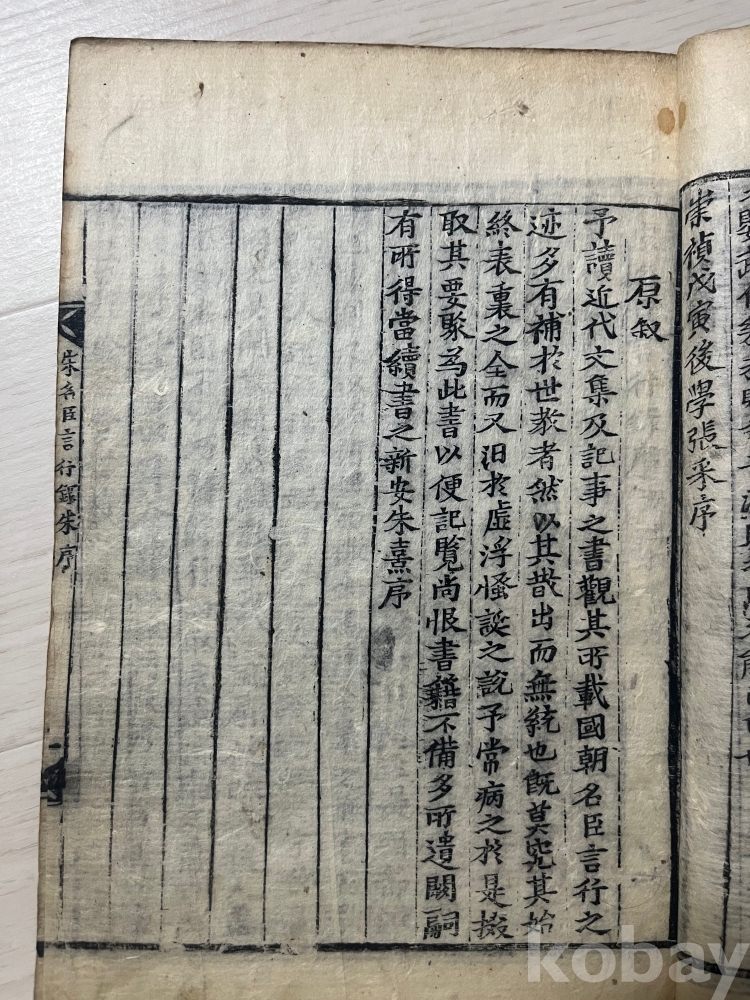 崇禎戊寅後學張采序
原叙
予讀近代文集及記事之書觀其所載國朝名臣言行之
迹多有補於世教者然以其散出而無統也旣莫究其始
終表裏之全而又汩於虛浮怪誕之說予常病之於是掇
取其要聚爲此書以便記覽尚恨書籍不備多所遺闕嗣
有所得當續書之新安朱熹序
宋名臣言行錄朱序
一
kobay